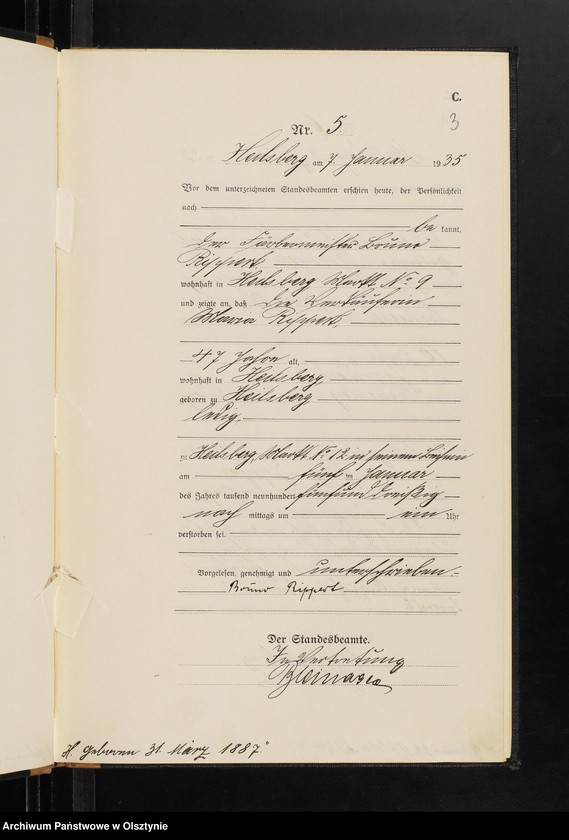 C.
3
Nr. 5.
Heilsberg am 7. Januar 1935
Vor dem unterzeichneten Standesbeamten erschien heute, der Persönlichkeit
nach
be kannt,
der Färbermeister Bruno
Rippert
wohnhaft in Heilsberg Markt No 9
und zeigte an, daß die Verkäuferin
Maria Rippert,
47 Jahre alt,
wohnhaft in Heilsberg
geboren zu Heilsberg
ledig.
zu Heilsberg, Markt No 12 in seinem Beisein
am fünf ten Januar
des Jahres tausend neunhundert fünfund dreißig
nach mittags um ein Uhr
verstorben sei.
Vorgelesen, genehmigt und unterschrieben
Bruno Rippert
Der Standesbeamte.
In Vertretung
H. geboren 31. März 1887."
Archiwum Państwowe w Olsztynie